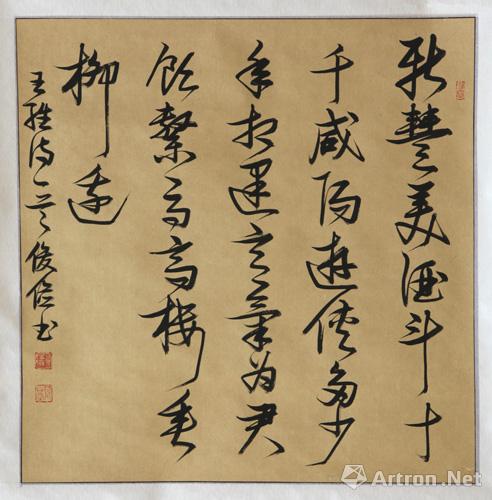 新豐美酒斗十
千咸陽遊俠多少
年相逢意氣为君
飲繫馬高樓垂
柳邊
王維詩一首 俊書
Artron.Net